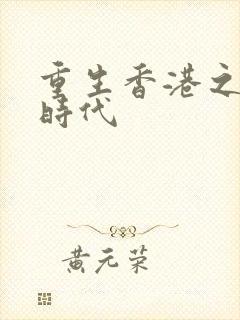 重生香港之
時代
黄元荣